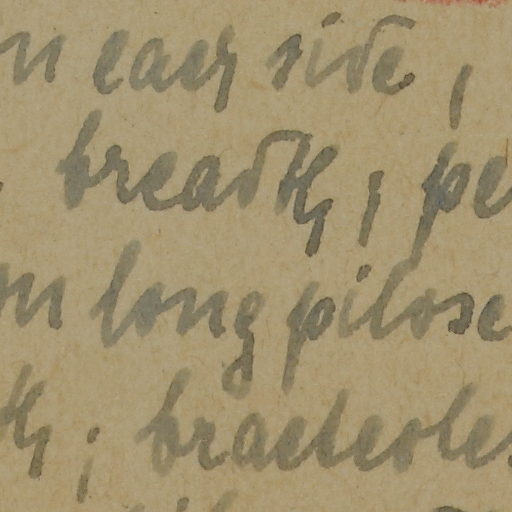 on each side,
breadth; pe
m long pilose
th; bracteoles